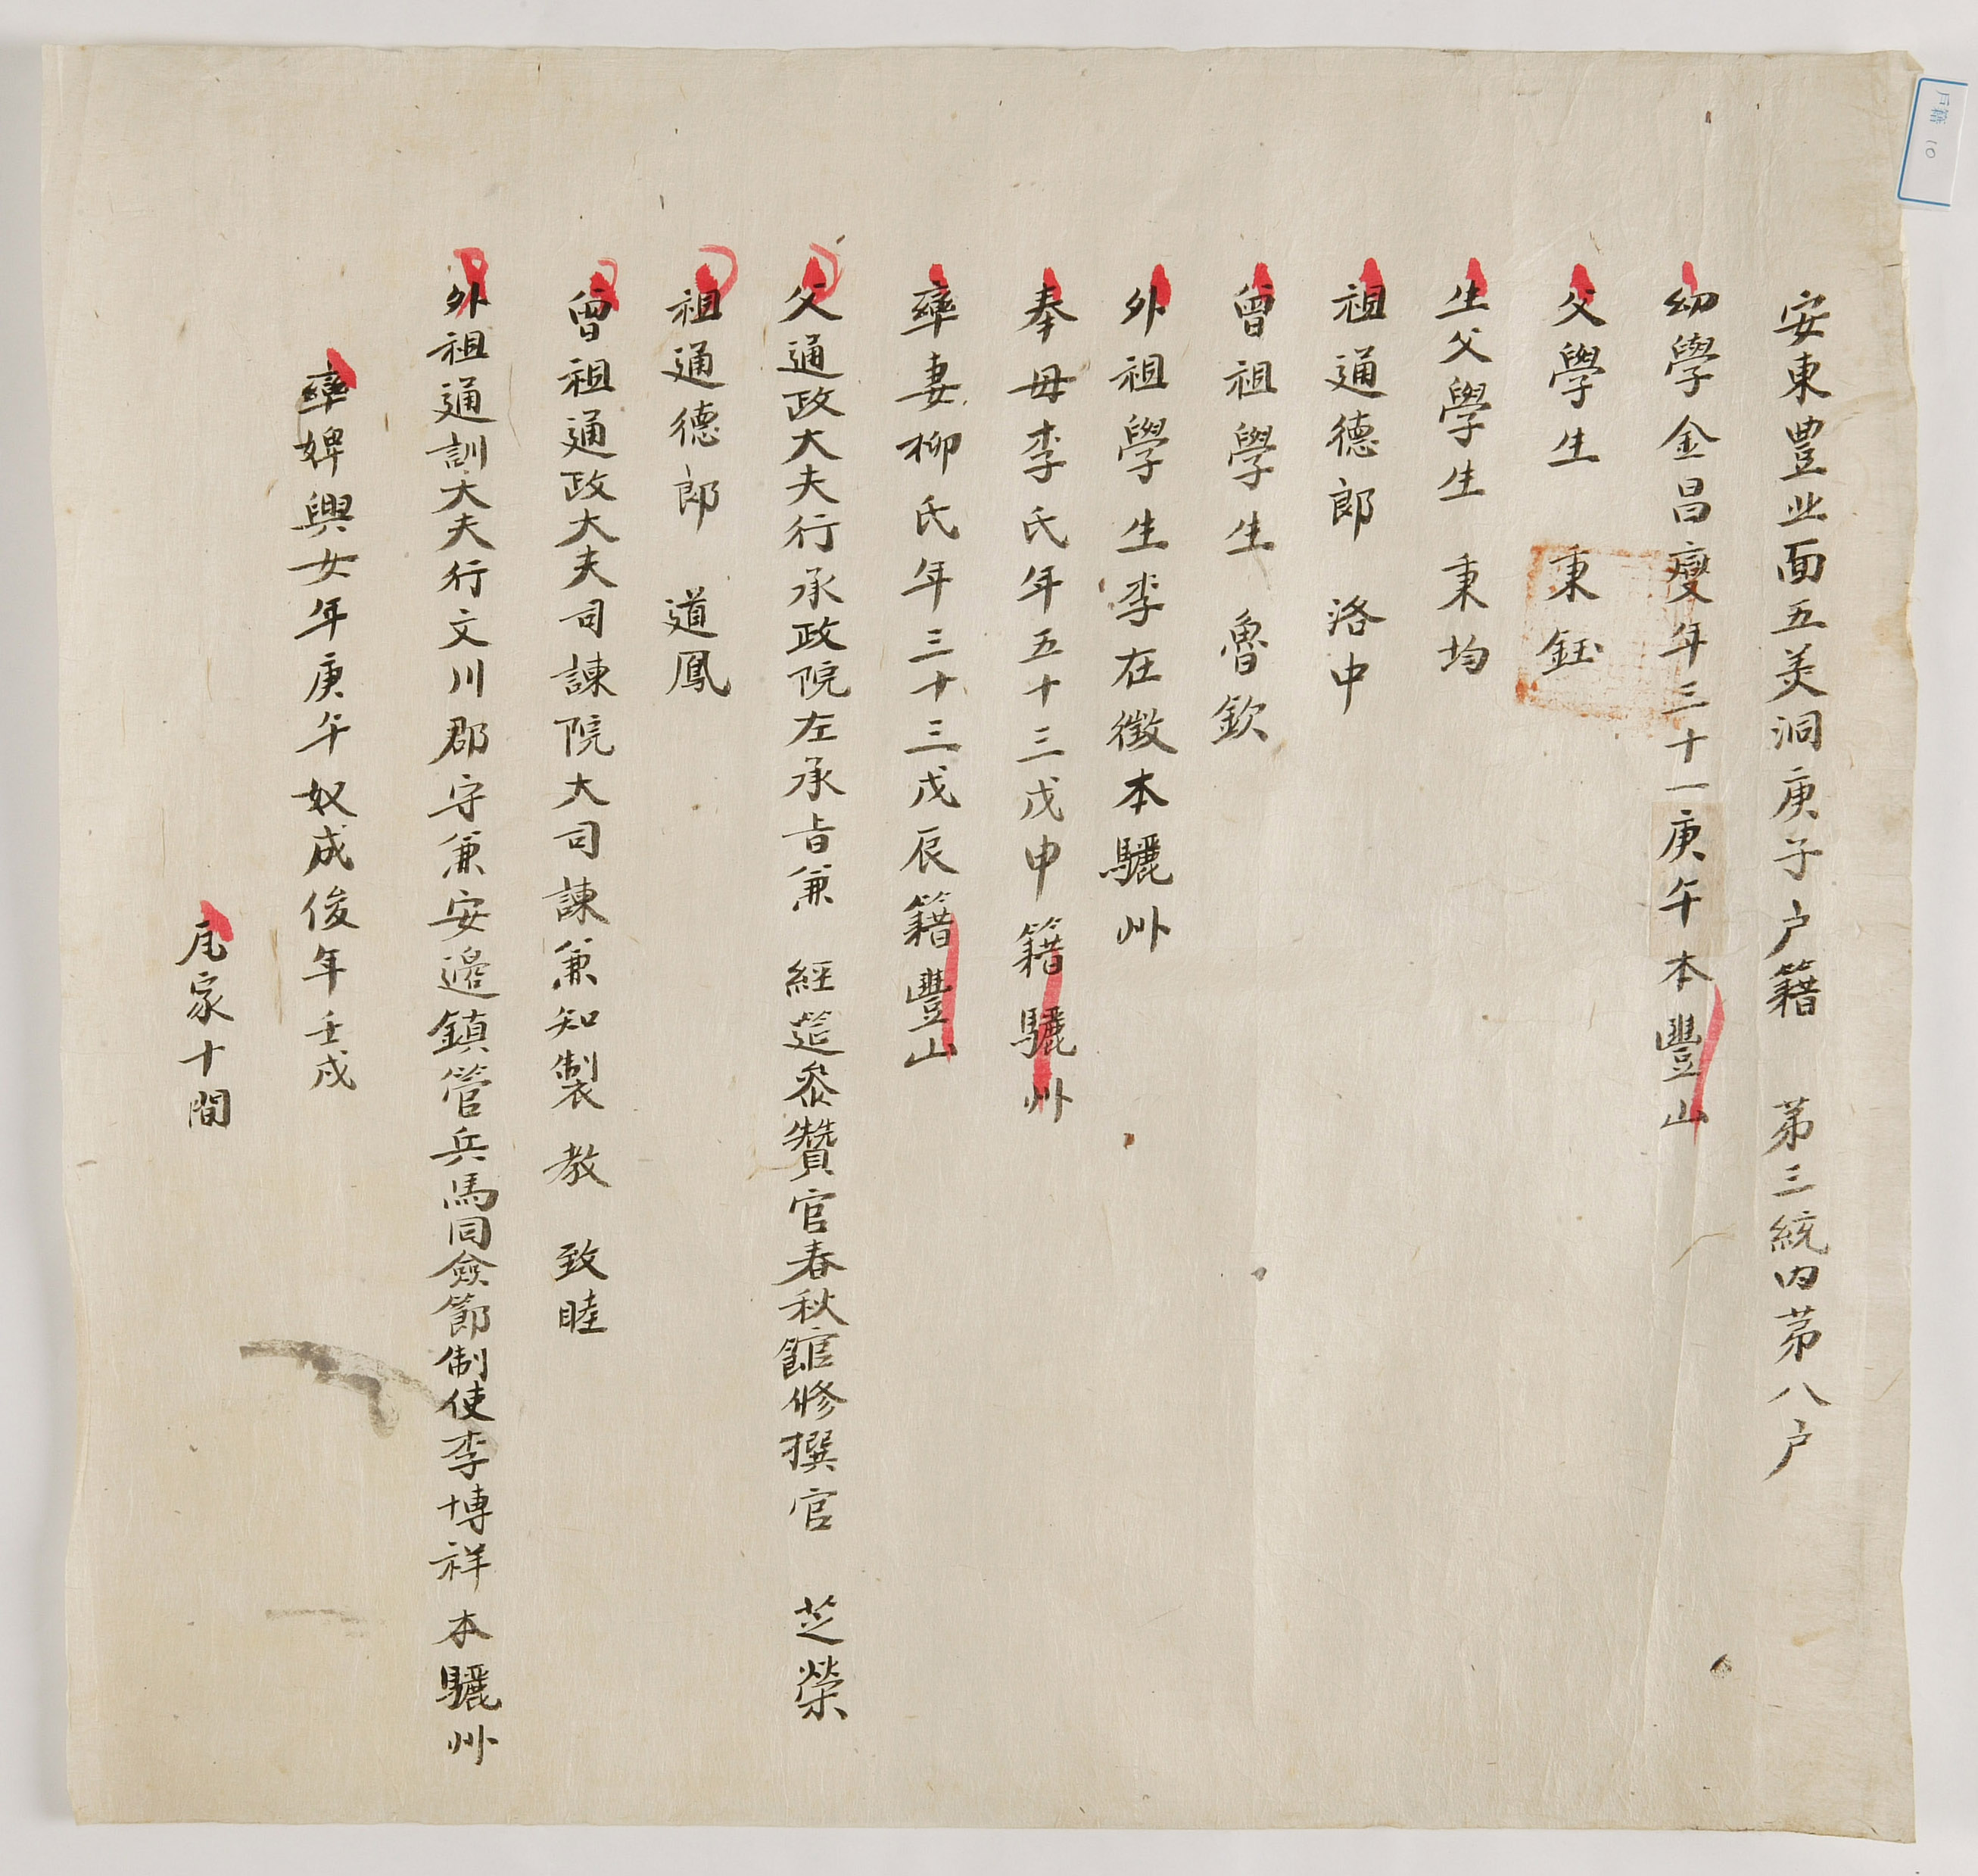 安東豊北面五美洞庚子户籍 苐三統内苐八户
幼學金昌燮年三十一庚午本豐山
父學生 秉鈺
生父學生 秉均
祖通德郎 洛中
曾祖學生 魯欽
外祖學生李在徵本驪州
奉母李氏年五十三戊申籍驪州
率妻柳氏年三十三戊辰籍豐山
父通政大夫行承政院左承旨兼 經莚叅贊官春秋館修撰官 芝榮
祖通德郎 道鳳
曾祖通政大夫司諫院大司諫兼知製 教 致睦
外祖通訓大夫行文川郡守兼安邉鎮管兵馬同僉節制使李博祥本驪州
率婢興女年庚午奴成俊年壬戌
瓦家十間
戶籍 10